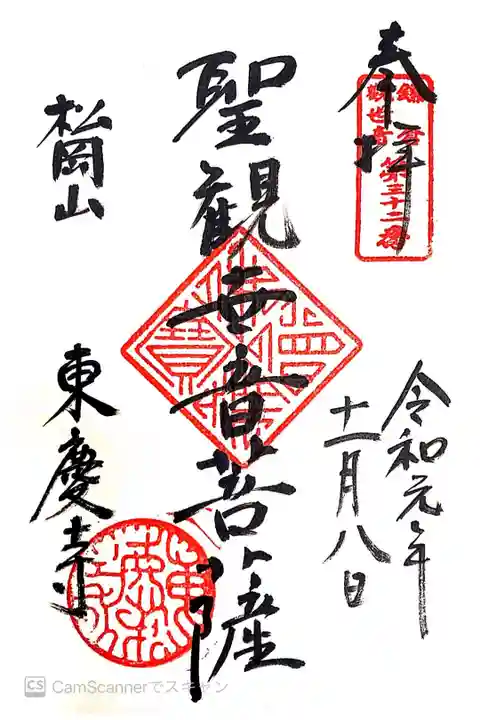 奉拝
鎌倉
観世音
第三十二番
令和元年
十一月八日
聖観世音菩薩
松岡山
東慶寺
CS CamScannerでスキャン